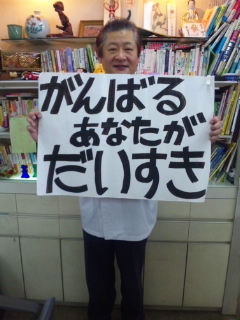 がんばる
あなたが
だいすき